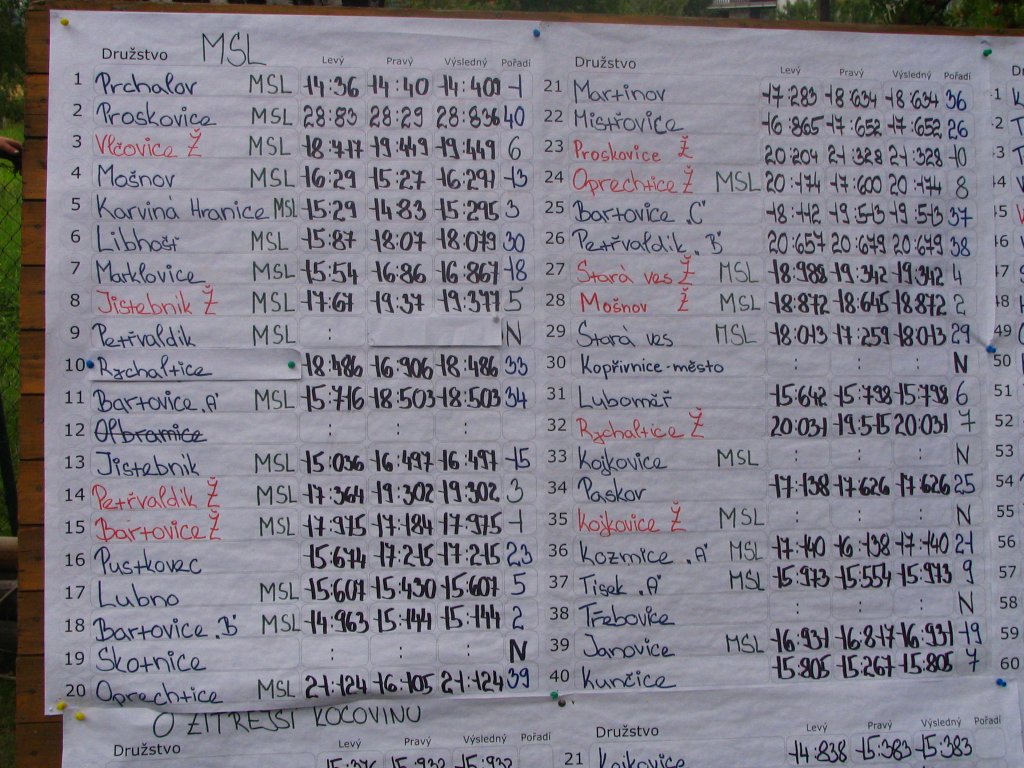 MSL
Družstvo Levý Pravý Výsledný Pořadí
1 Prchalov MSL 14:36 14:40 14:409 1
2 Proskovice MSL 28:83 28:29 28:836 40
3 Vlčovice Ž MSL 18:717 19:449 19:449 6
4 Mošnov MSL 16:29 15:27 16:291 13
5 Karviná Hranice MSL 15:29 14:83 15:295 3
6 Libhošť MSL 15:87 18:07 18:079 30
7 Marklovice MSL 15:54 16:86 16:867 18
8 Jistebník Ž MSL 17:67 19:37 19:377 5
9 Petřvaldík MSL : N
10 Rychaltice 18:486 16:906 18:486 33
11 Bartovice "A" MSL 15:716 18:503 18:503 34
12 Olbramice : : :
13 Jistebník MSL 15:036 16:497 16:497 15
14 Petřvaldík Ž MSL 17:364 19:302 19:302 3
15 Bartovice Ž MSL 17:975 17:184 17:975 1
16 Pustkovec 15:674 17:215 17:215 23
17 Lubno MSL 15:607 15:430 15:607 5
18 Bartovice "B" MSL 14:963 15:144 15:144 2
19 Skotnice : : : N
20 Oprechtice MSL 21:124 16:105 21:124 39
Družstvo Levý Pravý Výsledný Pořadí
21 Martinov 17:283 18:634 18:634 36
22 Mistřovice 16:865 17:652 17:652 26
23 Proskovice Ž 20:204 21:328 21:328 10
24 Oprechtice Ž MSL 20:174 17:600 20:174 8
25 Bartovice "C" 18:112 19:513 19:513 37
26 Petřvaldík "B" 20:657 20:679 20:679 38
27 Stará ves Ž MSL 18:988 19:342 19:342 4
28 Mošnov Ž MSL 18:872 18:645 18:872 2
29 Stará ves MSL 18:013 17:259 18:013 29
30 Kopřivnice-město : : : N
31 Luboměř 15:642 15:798 15:798 6
32 Rychaltice Ž 20:031 19:515 20:031 7
33 Kojkovice MSL : : : N
34 Paskov 17:138 17:626 17:626 25
35 Kojkovice Ž MSL : : : N
36 Kozmice "A" MSL 17:140 16:138 17:140 21
37 Tísek "A" MSL 15:973 15:554 15:973 9
38 Třebovice : : : N
39 Janovice MSL 16:931 16:817 16:931 19
40 Kunčice 15:805 15:267 15:805 7
49
50
51
52
53
54
55
56
57
58
59
60
O ZÍTŘEJŠÍ KOCOVINU
Družstvo Levý Pravý Výsledný Pořadí
15:932 15:932
Družstvo Levý Pravý Výsledný Pořadí
21 Kojkovice 14:838 15:383 15:383